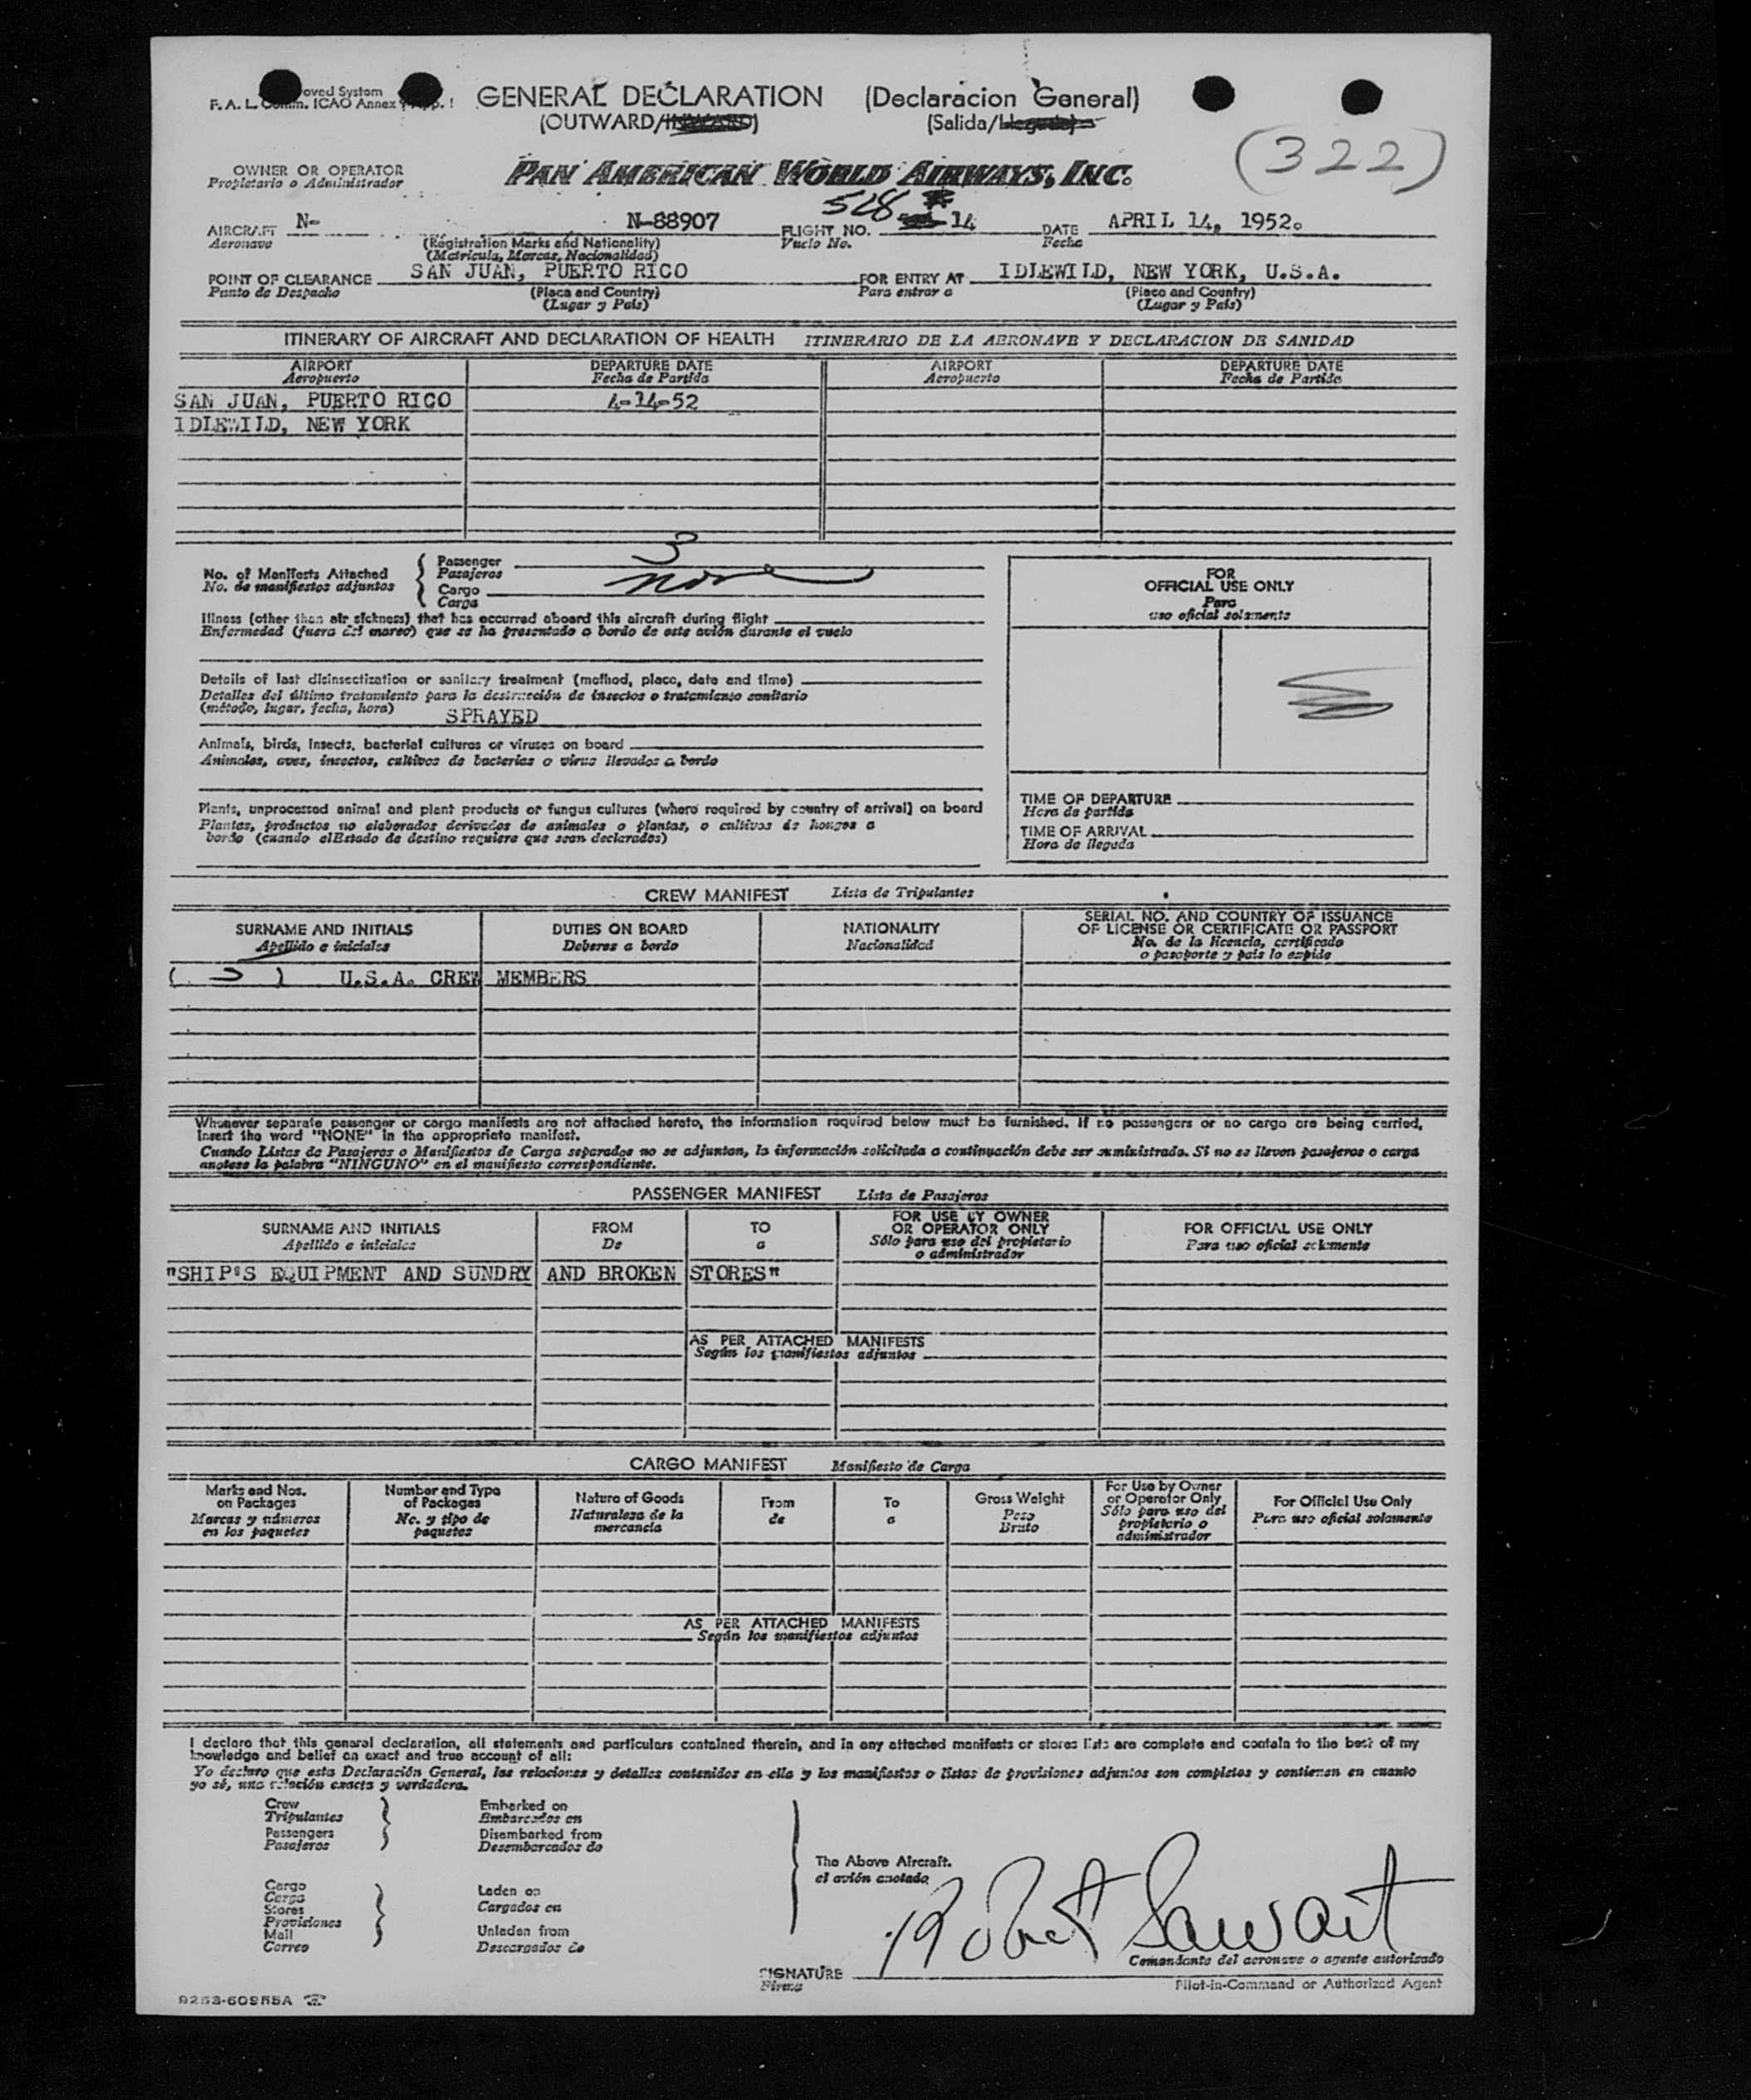 oved System
F. A. L. Comm. ICAO Annex
GENERAL DECLARATION (Declaracion General)
(OUTWARD/INWARD) (Salida/Llegada)
(322)
OWNER OR OPERATOR
Propietario o Administrador
PAN AMERICAN WORLD AIRWAYS, INC.
528
AIRCRAFT N- N-88907 FLIGHT NO. 14 DATE APRIL 14, 1952.
Aeronave (Registration Marks and Nationality) Vuelo No. Fecha
(Matricula, Marcas, Nacionalidad)
POINT OF CLEARANCE SAN JUAN, PUERTO RICO FOR ENTRY AT IDLEWILD, NEW YORK, U.S.A.
Punto de Despacho (Place and Country) Para entrar a (Place and Country)
(Lugar y País) (Lugar y País)
ITINERARY OF AIRCRAFT AND DECLARATION OF HEALTH ITINERARIO DE LA AERONAVE Y DECLARACION DE SANIDAD
AIRPORT DEPARTURE DATE AIRPORT DEPARTURE DATE
Aeropuerto Fecha de Partida Aeropuerto Fecha de Partida
SAN JUAN, PUERTO RICO 4-14-52
IDLEWILD, NEW YORK
No. of Manifests Attached
No. de manifiestos adjuntos
Passenger 3
Pasajeros
Cargo none
Carga
Illness (other than air sickness) that has occurred aboard this aircraft during flight
Enfermedad (fuera del mareo) que se ha presentado a bordo de este avión durante el vuelo
Details of last disinsectization or sanitary treatment (method, place, date and time)
Detalles del último tratamiento para la destrucción de insectos o tratamiento sanitario
(método, lugar, fecha, hora) SPRAYED
Animals, birds, insects, bacterial cultures or viruses on board
Animales, aves, insectos, cultivos de bacterias o virus llevados a bordo
Plants, unprocessed animal and plant products or fungus cultures (where required by country of arrival) on board
Plantas, productos no elaborados derivados de animales o plantas, o cultivos de hongos a
bordo (cuando elEstado de destino requiere que sean declarados)
FOR
OFFICIAL USE ONLY
Para
uso oficial solamente
TIME OF DEPARTURE
Hora de partida
TIME OF ARRIVAL
Hora de llegada
CREW MANIFEST Lista de Tripulantes
SURNAME AND INITIALS DUTIES ON BOARD NATIONALITY SERIAL NO. AND COUNTRY OF ISSUANCE
OF LICENSE OR CERTIFICATE OR PASSPORT
Apellido e iniciales Deberes a bordo Nacionalidad No. de la licencia, certificado
o pasaporte y país lo expide
( ) U.S.A. CREW MEMBERS
Whenever separate passenger or cargo manifests are not attached hereto, the information required below must be furnished. If no passengers or no cargo are being carried,
Insert the word "NONE" in the appropriate manifest.
Cuando Listas de Pasajeros o Manifiestos de Carga separados no se adjuntan, la información solicitada a continuación debe ser suministrada. Si no se llevan pasajeros o carga
anotese la palabra "NINGUNO" en el manifiesto correspondiente.
PASSENGER MANIFEST Lista de Pasajeros
SURNAME AND INITIALS FROM TO FOR USE BY OWNER
OR OPERATOR ONLY FOR OFFICIAL USE ONLY
Apellido e iniciales De a Sólo para uso del propietario
o administrador Para uso oficial solamente
"SHIP'S EQUIPMENT AND SUNDRY AND BROKEN STORES"
AS PER ATTACHED MANIFESTS
Según los manifiestos adjuntos
CARGO MANIFEST Manifiesto de Carga
Marks and Nos.
on Packages
Marcas y números
en los paquetes
Number and Type
of Packages
No. y tipo de
paquetes
Nature of Goods
Naturaleza de la
mercancia
From
de
To
a
Gross Weight
Peso
Bruto
For Use by Owner
or Operator Only
Sólo para uso del
propietario o
administrador
For Official Use Only
Para uso oficial solamente
AS PER ATTACHED MANIFESTS
Según los manifiestos adjuntos
I declare that this general declaration, all statements and particulars contained therein, and in any attached manifests or stores lists are complete and contain to the best of my
knowledge and belief an exact and true account of all:
Yo declaro que esta Declaración General, las relaciones y detalles contenidos en ella y los manifiestos o listas de provisiones adjuntos son completos y contienen en cuanto
yo sé, una relación exacta y verdadera.
Crew
Tripulantes
Passengers
Pasajeros
Embarked on
Embarcados en
Disembarked from
Desembarcados de
Cargo
Carga
Stores
Provisiones
Mail
Correo
Laden on
Cargados en
Unladen from
Descargados de
The Above Aircraft.
el avión anotado
Robert
Comandante del aeronave o agente autorizado
SIGNATURE
Firma
Pilot-in-Command or Authorized Agent
9253-60955A